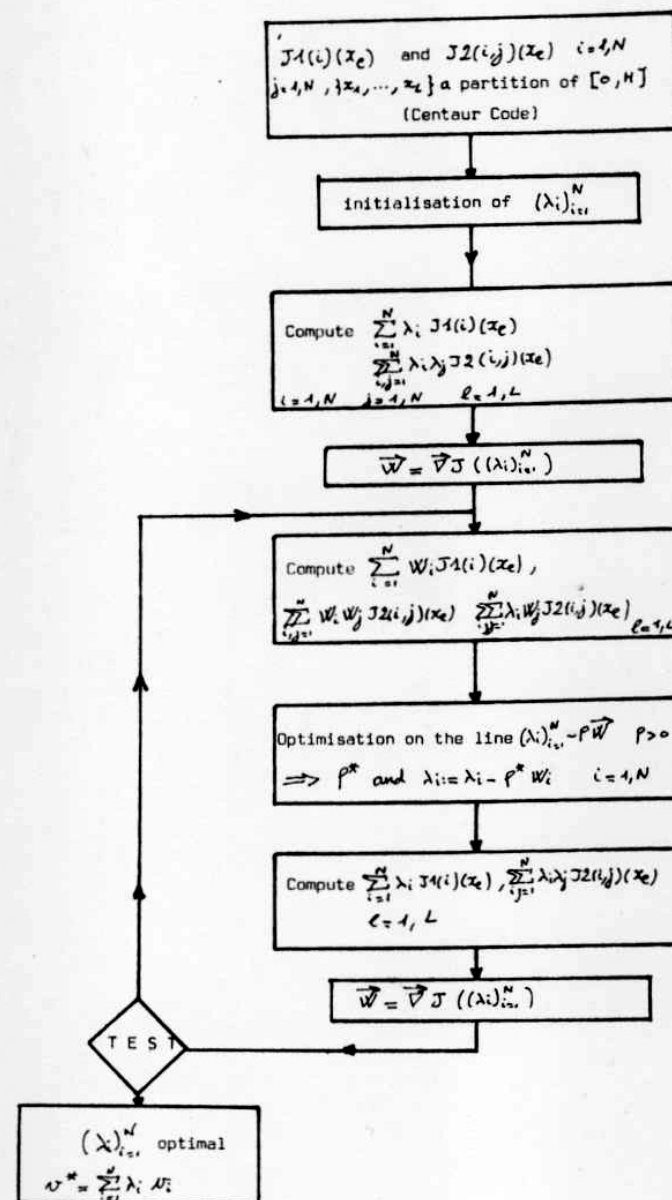 J1(i)(x_ℓ) and J2(i,j)(x_ℓ) i=1,N
j=1,N, {x_1,...,x_L} a partition of [0,H]
(Centaur Code)
initialisation of (λ_i)_{i=1}^N
Compute ∑_{i=1}^N λ_i J1(i)(x_ℓ)
∑∑_{i,j=1}^N λ_i λ_j J2(i,j)(x_ℓ)
i=1,N j=1,N ℓ=1,L
W⃗ = ∇⃗J((λ_i)_{i=1}^N)
Compute ∑_{i=1}^N W_i J1(i)(x_ℓ),
∑∑_{i,j=1}^N W_i W_j J2(i,j)(x_ℓ) ∑∑_{i,j=1}^N λ_i W_j J2(i,j)(x_ℓ) ℓ=1,L
Optimisation on the line (λ_i)_{i=1}^N - ρW⃗ ρ>0
⟹ ρ* and λ_i := λ_i - ρ* W_i i=1,N
Compute ∑_{i=1}^N λ_i J1(i)(x_ℓ), ∑∑_{i,j=1}^N λ_i λ_j J2(i,j)(x_ℓ)
ℓ=1,L
W⃗ = ∇⃗J((λ_i)_{i=1}^N)
TEST
(λ_i)_{i=1}^N optimal
v* = ∑_{i=1}^N λ_i v_i